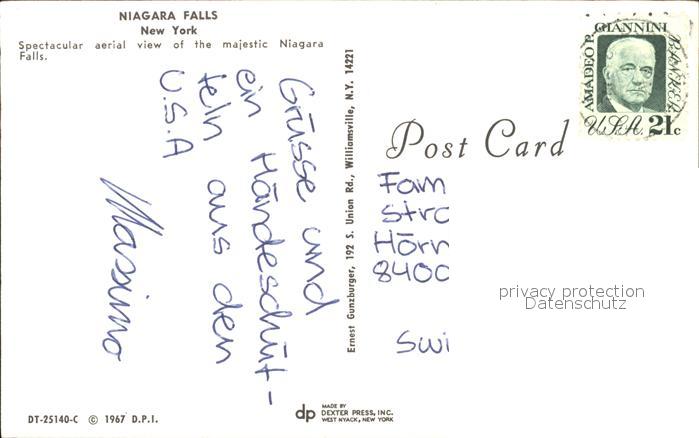 NIAGARA FALLS
New York
Spectacular aerial view of the majestic Niagara
Falls.
Grüsse und
ein Händeschüt-
teln aus den
U.S.A
Massimo
Ernest Gunzburger, 192 S. Union Rd., Williamsville, N.Y. 14221
AMADEO P. GIANNINI
BANKER
U.S.A. 21c
Post Card
Fam
Stra
Hörn
8400
Swi
privacy protection
Datenschutz
DT-25140-C © 1967 D.P.I.
dp MADE BY
DEXTER PRESS, INC.
WEST NYACK, NEW YORK